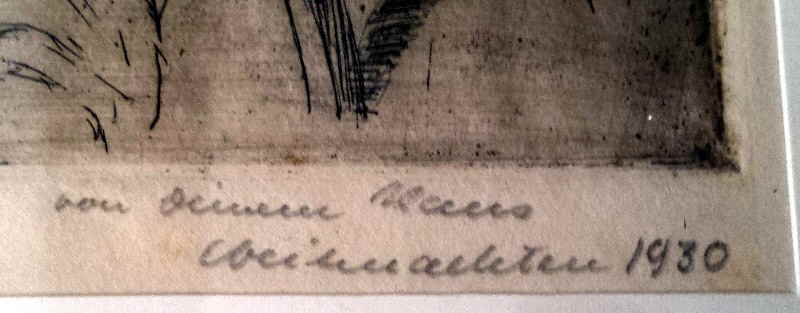 von Deinem Klaus
Weihnachten 1930